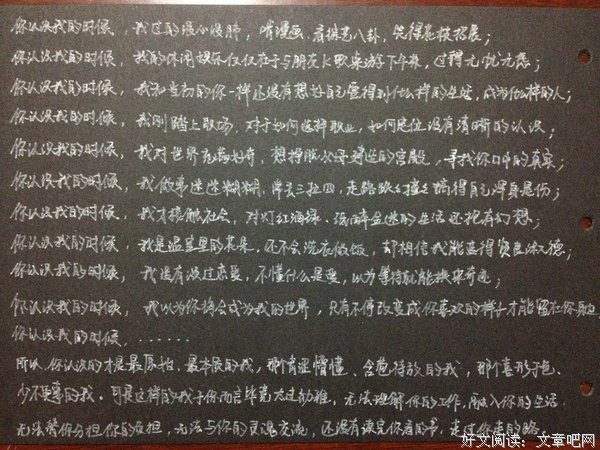 你认识我的时候，我过的没心没肺，啃漫画，看搞笑八卦，笑得花枝招展；
你认识我的时候，我的休闲娱乐仅仅在于与朋友K歌桌游下午茶，过得无忧无虑；
你认识我的时候，我和当初的你一样还没有想好自己要得到什么样的生活，成为什么样的人；
你认识我的时候，我刚踏上职场，对于如何选择职业，如何定位没有清晰的认识；
你认识我的时候，我对世界充满好奇，想挣脱父母建造的宫殿，寻找你口中的真实；
你认识我的时候，我做事迷迷糊糊，丢三拉四，走路跌跌撞撞搞得自己浑身是伤；
你认识我的时候，我才接触社会，对灯红酒绿、纸醉金迷的生活还抱有幻想；
你认识我的时候，我是温室里的花朵，还不会洗衣做饭，却相信我能变得贤良淑德；
你认识我的时候，我还没有谈过恋爱，不懂什么是爱，以为等待就能换来奇迹；
你认识我的时候，我以为你将会成为我的世界，只有不停改变成你喜欢的样子才能留在你身边
你认识我的时候．．．．．．．
所以，你认识的才是最原始、最本质的我，那个青涩懵懂、含苞待放的我，那个喜形于色、
少不更事的我．可是这样的我于你而言毕竟太过幼稚，无法理解你的工作，融入你的生活．
无法替你分担你的负担，无法与你的灵魂交流，还没有读完你看的书，走过你走的路．
好文阅读：文章吧网